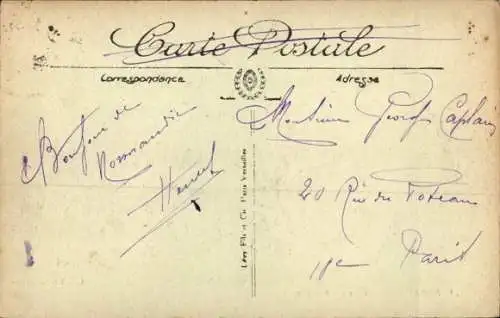 Carte Postale
Correspondance
Adresse
Bonjour de
Normandie
Lévy Fils et Cie Paris Versailles
Monsieur Georges Caplain
20 Rue du Poteau
18e Paris